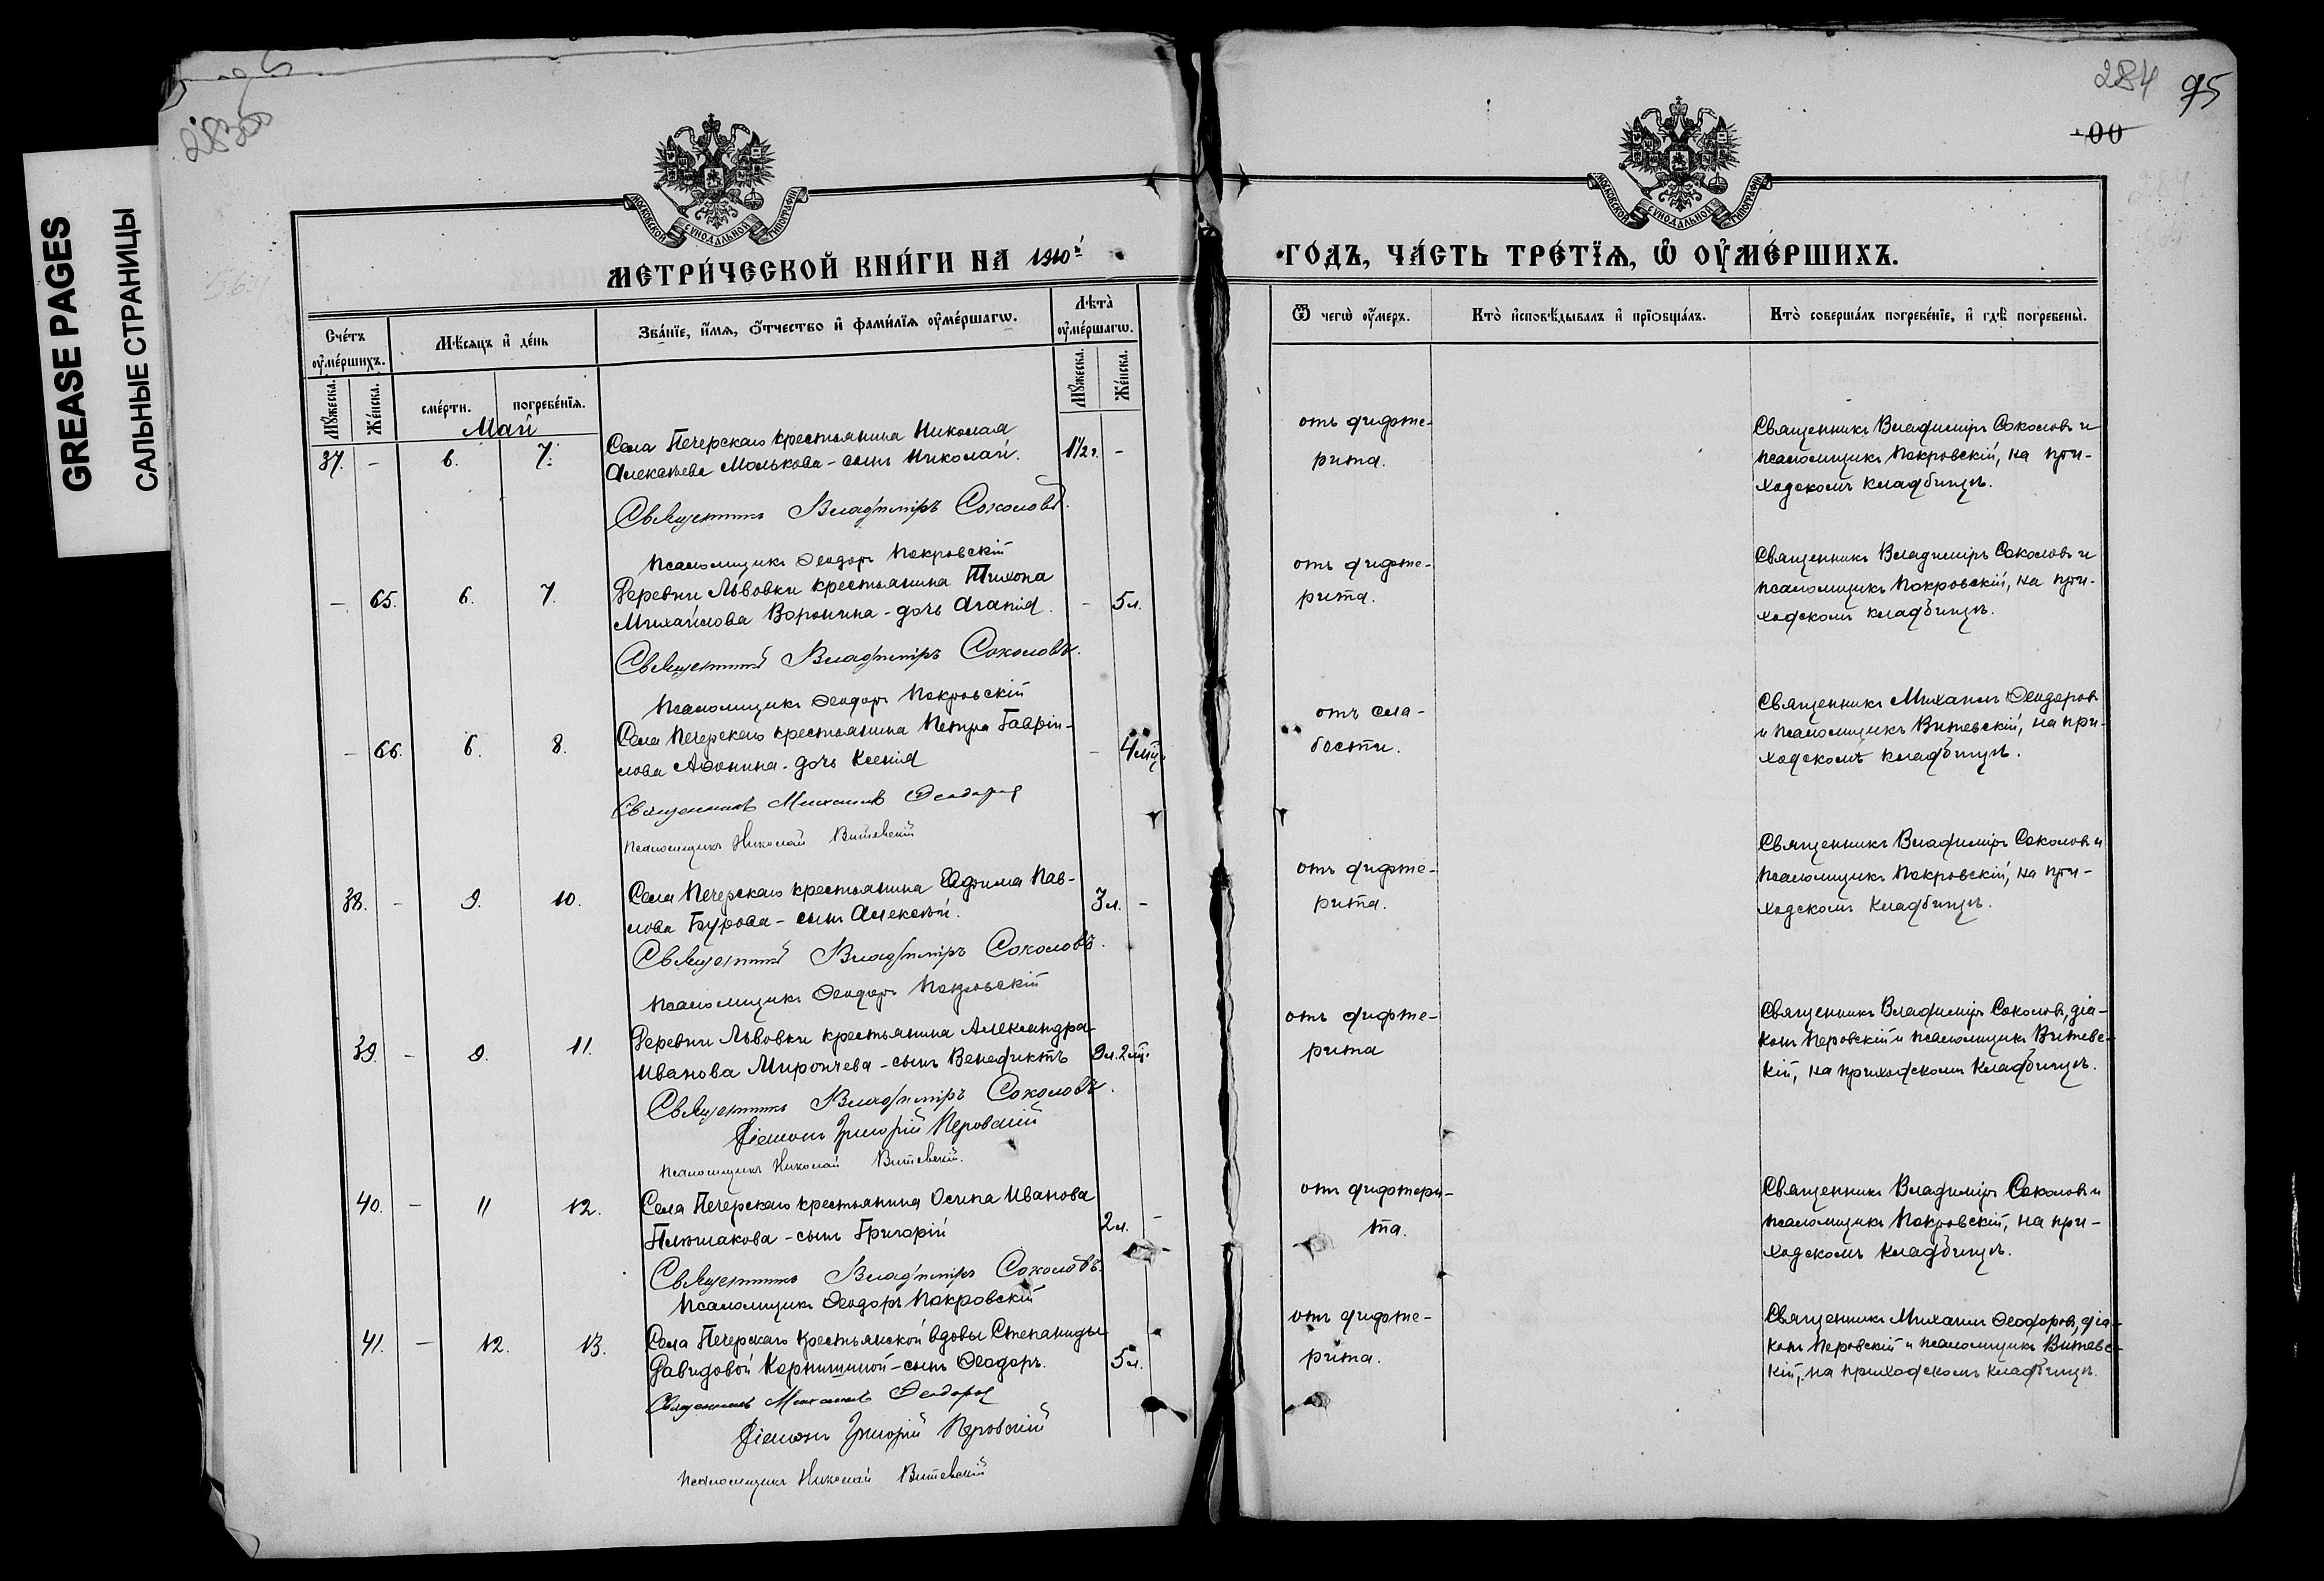 GREASE PAGES
САЛЬНЫЕ СТРАНИЦЫ
283об
284
95
00
МОСКОВСКОЙ СѴНОДАЛЬНОЙ ТИПОГРАФІИ
МОСКОВСКОЙ СѴНОДАЛЬНОЙ ТИПОГРАФІИ
МЕТРИ́ЧЕСКОЙ КНИ́ГИ НА 1910й
ГОДЪ, ЧА́СТЬ ТРЕ́ТЇѦ, Ѡ҆ ОУ҆МЕ́РШИХЪ.
Сче́тъ оу҆ме́ршихъ.
Мꙋ́жеска.
Же́нска.
Мѣ́сяцъ и҆ де́нь
сме́рти.
погребе́нїѧ.
Зва́нїе, и҆́мѧ, ѻ҆́тчество и҆ фами́лїѧ оу҆ме́ршагѡ.
Лѣта̀ оу҆ме́ршагѡ.
Мꙋ́жеска.
Же́нска.
Ѿ чегѡ̀ оу҆́меръ.
Кто̀ и҆сповѣ́дывалъ и҆ прїѻбща́лъ.
Кто̀ соверша́лъ погребе́нїе, и҆ гдѣ̀ погребены̀.
Май
37. - 6. 7. Села Печерскаго крестьянина Николая
Алексѣева Молькова - сынъ Николай. 1½ г. -
Священникъ Владиміръ Соколовъ.
Псаломщикъ Ѳеодоръ Покровскій
отъ дифте-
рита.
Священникъ Владиміръ Соколовъ и
псаломщикъ Покровскій, на при-
ходскомъ кладбищѣ.
- 65. 6. 7. Деревни Львовки крестьянина Тихона
Михайлова Воронина - дочь Агапія. - 5 л.
Священникъ Владиміръ Соколовъ.
Псаломщикъ Ѳеодоръ Покровскій
отъ дифте-
рита.
Священникъ Владиміръ Соколовъ и
псаломщикъ Покровскій, на при-
ходскомъ кладбищѣ.
- 66. 6. 8. Села Печерскаго крестьянина Петра Гаврiи-
лова Аѳонина - дочь Ксенія - 4 мѣц.
Священникъ Михаилъ Ѳеодоровъ
Псаломщикъ Николай Витевскій
отъ сла-
бости.
Священникъ Михаилъ Ѳеодоровъ
и псаломщикъ Витевскій, на при-
ходскомъ кладбищѣ.
38. - 9. 10. Села Печерскаго крестьянина Ефима Пав-
лова Бурова - сынъ Алексѣй. 3 л. -
Священникъ Владиміръ Соколовъ.
Псаломщикъ Ѳеодоръ Покровскій
отъ дифте-
рита.
Священникъ Владиміръ Соколовъ и
псаломщикъ Покровскій, на при-
ходскомъ кладбищѣ.
39. - 9. 11. Деревни Львовки крестьянина Александра
Иванова Мирончева - сынъ Венедиктъ 9 л. 2 мц.
Священникъ Владиміръ Соколовъ.
Діаконъ Григорій Перовскій
Псаломщикъ Николай Витевскій.
отъ дифте-
рита
Священникъ Владиміръ Соколовъ, діа-
конъ Перовскій и псаломщикъ Витевс-
кій, на приходскомъ кладбищѣ.
40. - 11 12. Села Печерскаго крестьянина Осипа Иванова
Плюшакова - сынъ Григорій 2 л. -
Священникъ Владиміръ Соколовъ.
Псаломщикъ Ѳеодоръ Покровскій
отъ дифтери-
та.
Священникъ Владиміръ Соколовъ и
псаломщикъ Покровскій, на при-
ходскомъ кладбищѣ.
41. - 12. 13. Села Печерскаго крестьянской вдовы Степаниды
Давидовой Корнишиной - сынъ Ѳеодоръ. 5 л.
Священникъ Михаилъ Ѳеодоровъ
Діаконъ Григорій Перовскій
Псаломщикъ Николай Витевскій
отъ дифте-
рита.
Священникъ Михаилъ Ѳеодоровъ, діа-
конъ Перовскій и псаломщикъ Витевс-
кій, на приходскомъ кладбищѣ.